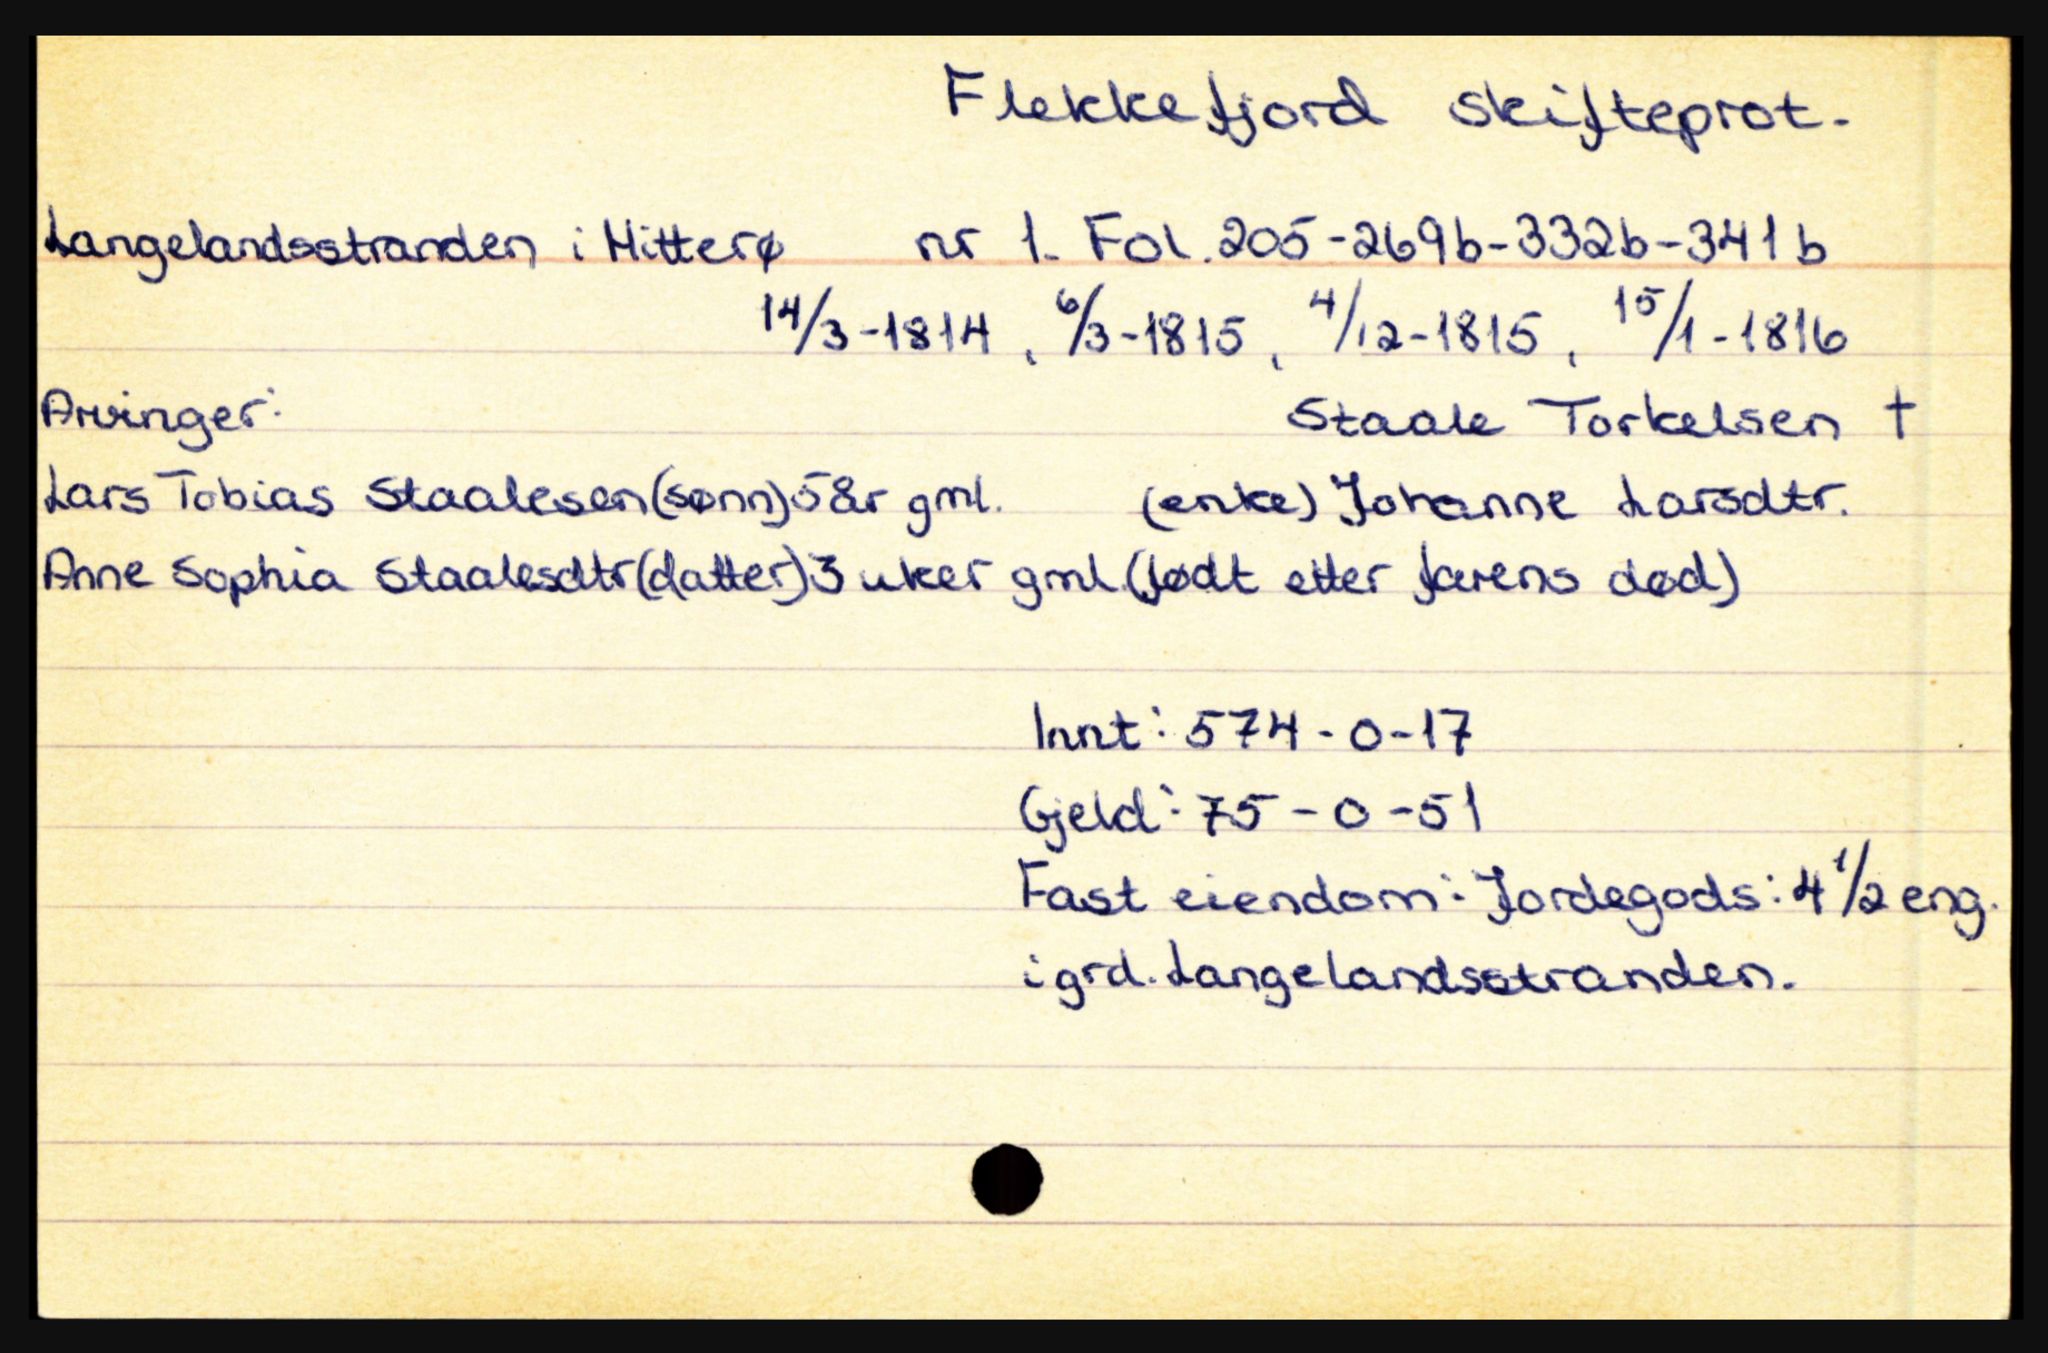 Flekkefjord skifteprot.
Langelandsstranden i Hitterø nr 1. Fol. 205-269b-332b-341b
14/3-1814, 6/3-1815, 4/12-1815, 15/1-1816
Arvinger: Staale Torkelsen †
Lars Tobias Staalesen (sønn) 5 år gml. (enke) Johanne Larsdtr.
Anne Sophia Staalesdtr (datter) 3 uker gml. (født etter farens død)
Innt: 574-0-17
Gjeld: 75-0-51
Fast eiendom: Jordegods: 4 1/2 eng.
i grd. Langelandsstranden.